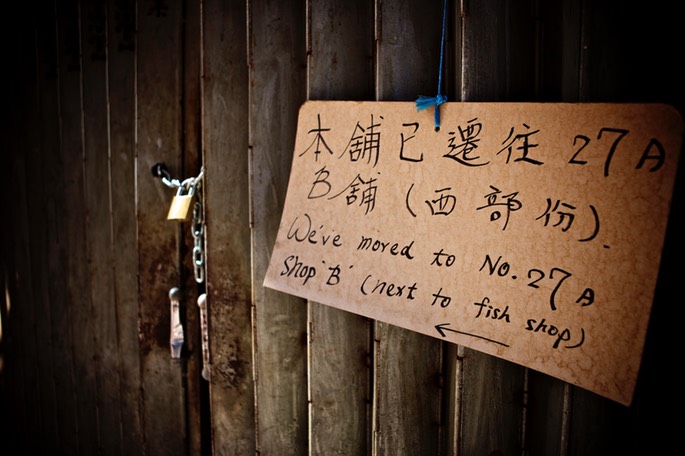 本舖已遷往 27A
B舖 (西部份).
We've moved to No. 27A
Shop "B" (next to fish shop)